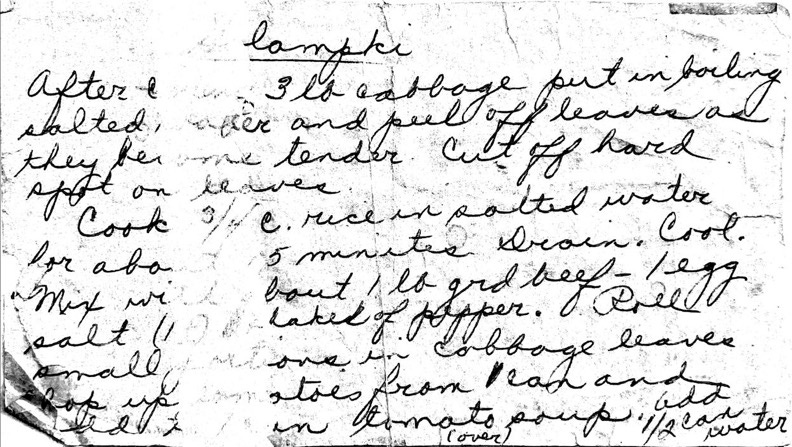 lompki
After 3 lb cabbage put in boiling
salted, er and peel off leaves as
they become tender. Cut off hard
spot on leaves.
Cook 3/4 c. rice in salted water
for abo 5 minutes. Drain. Cool.
Mix wi bout 1 lb grd beef - 1 egg
salt ( haked of pepper. Roll
small ions in cabbage leaves.
up atoes from 1 can and
in tomato soup. add
(over) 1/2 can water